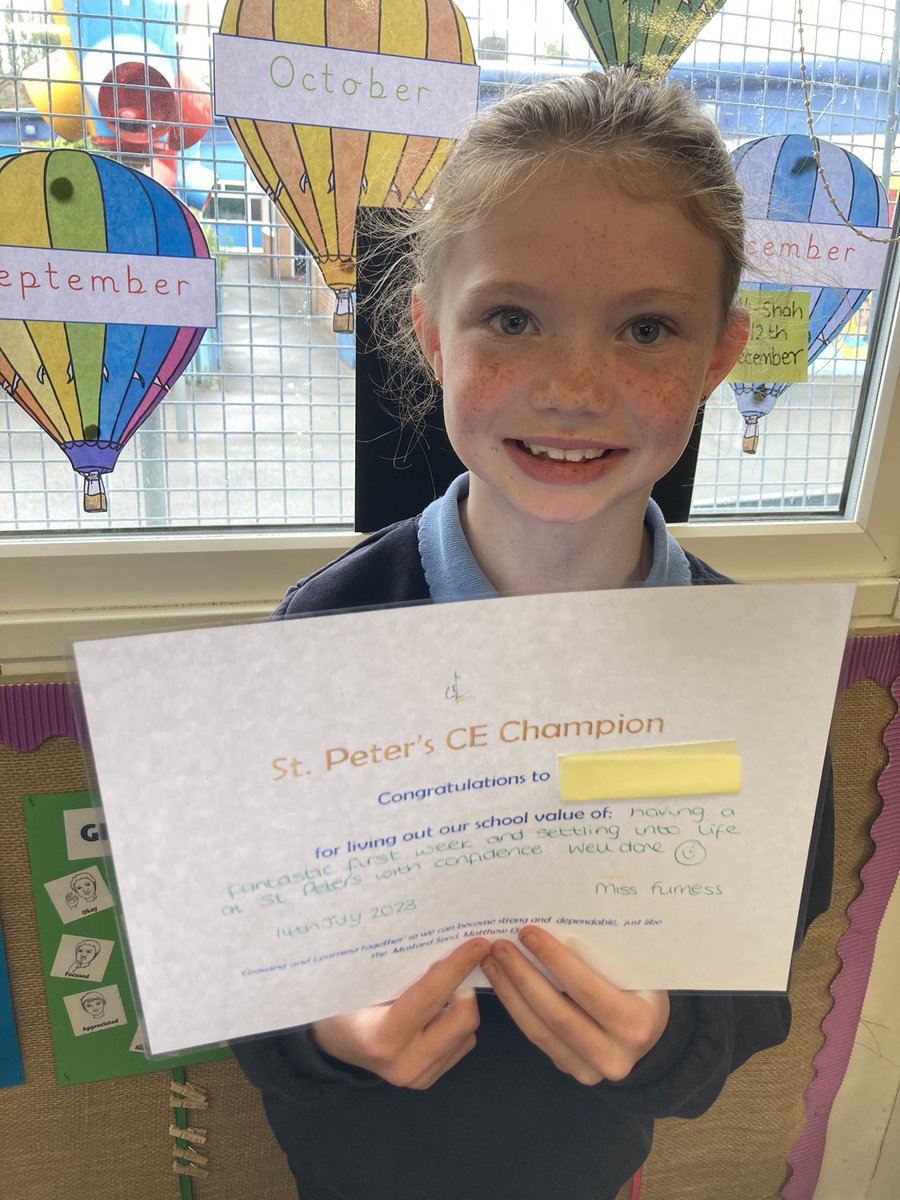 October
eptember
cember
Shah
12th
ecember
St. Peter's CE Champion
Congratulations to
for living out our school value of: having a
fantastic first week and settling into life
at St Peters with confidence. Well done
Miss Furness
14th July 2023
'Growing and Learning together' so we can become strong and dependable, just like
the Mustard Seed, Matthew
Okay
Focused
Appreciated